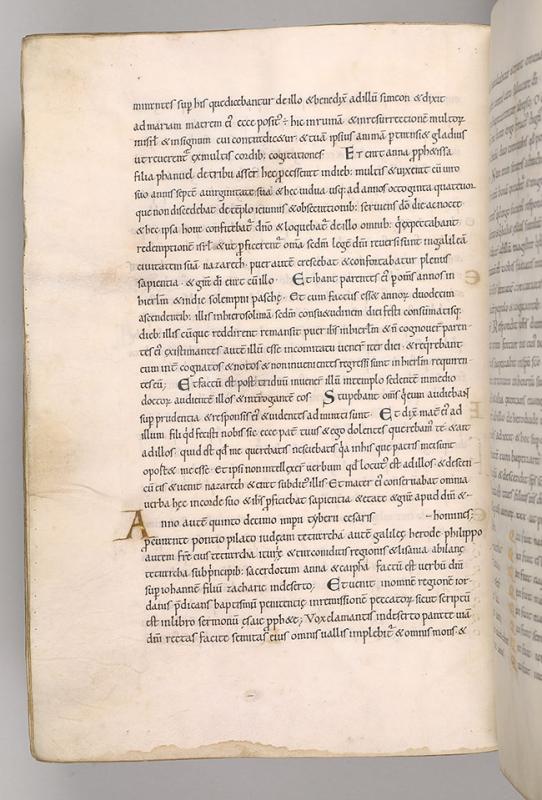 mirantes sup his que dicebantur de illo & benedix̄ ad illū simeon & dixit
ad mariam matrem ei ecce posit' ÷ hic in ruinā & in resurrectionē multoꝝ
in isr̄l & in signum cui contradic&ur & tuā ipsius animā ptransi& gladius
ut reuelent̄ ex multis cordib; cogitationes Et erat anna pph&issa
filia phanuel de tribu asser hec pcesserat in dieb; multis & uixerat cū uiro
suo annis septē a uirginitate sua & hec uidua usq; ad annos octoginta quatuor
que non discedebat de tēplo ieiuniis & obsecrationib; seruiens dō die ac nocte
& hec ipsa hora confitebat̄ dn̄o & loquebat̄ de illo omnib; q expectabant
redemptionē isr̄l & ut pfecerunt om̄a sedm̄ legē dn̄i reuersi sunt in galileā
in ciuitatem suā nazareth puer autē crescebat & confortabatur plenus
sapientia & gr̄a dī erat cū illo Et ibant parentes ei p om̄s annos in
hierl̄m in die solempni pasche Et cum factus ess& annoꝝ duodecim
ascendentib; illis in hierosolimā sedm̄ consu&udinem diei festi consūmatisq;
dieb; illis cūque reddirent remansit puer ih̄s in hierl̄m & n̄ cognouer̄ paren
tes ei existimantes autē illū esse in comitatu uener̄ iter diei & reqrebant
eum int̄ cognatos & notos & non inuenientes regressi sunt in hierl̄m requiren
tes eū; Et factū est post triduū inuener̄ illū in templo sedentē in medio
doctoꝝ audientē illos & int̄rogantē eos Stupebant om̄s q eum audiebant
sup prudentia & responsis ei & uidentes admirati sunt Et dix̄ mat̄ ei ad
illum fili qd fecisti nobis sic ecce pat̄ tuus & ego dolentes querebam' te & ait
ad illos quid est qd me querebatis nesciebatis qa in his que patris mei sunt
oport& me esse Et ipsi non intellexer̄ uerbum qd locut' est ad illos & descen
cū eis & uenit nazareth & erat subdit' illis Et mater ei conseruabat omnia
uerba hec in corde suo & ih̄s pficiebat sapientia & etate & gr̄a apud dm̄ &
Anno autē quinto decimo imp̄ii tyberii cesaris homines;
peurante pontio pilato iudeam tetrarcha autē galileę herode philippo
autem fr̄e ei tetrarcha itureę & traconitidis regionis & lisania abilanę
tetrarcha sub principib; sacerdotum anna & caipha factū est uerbū dn̄i
sup iohannē filiū zacharie in deserto; Et uenit in omnē regionē ior
danis p̄dicans baptismū penitentię in remissionē peccatoꝝ sicut scriptū
est in libro sermonū ęsaie pph&e; Vox clamantis in deserto parate uiā
dn̄i rectas facite semitas eius omnis uallis implebit̄ & omnis mons &